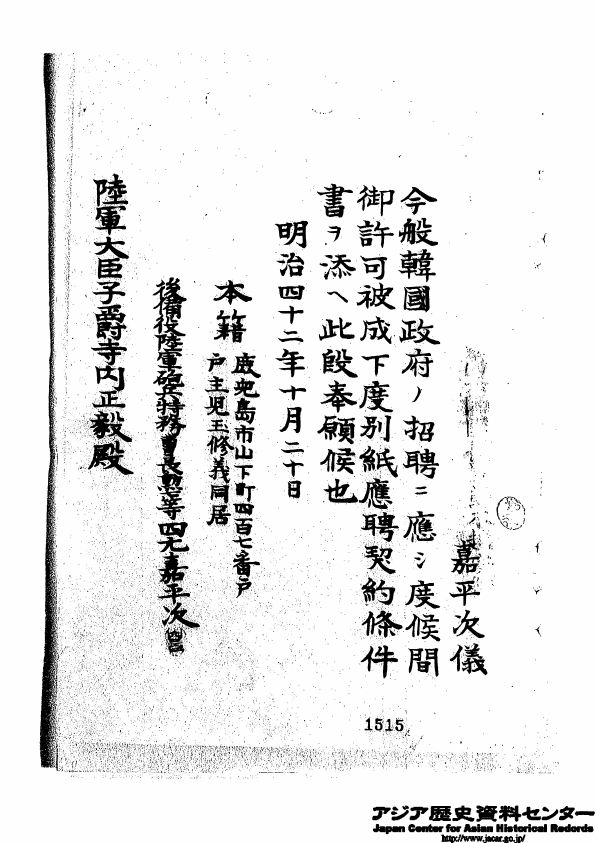 嘉平次儀
今般韓國政府ノ招聘ニ應シ度候間
御許可被成下度別紙應聘契約條件
書ヲ添ヘ此段奉願候也
明治四十二年十月二十日
本籍 鹿児島市山下町四百七番戸
戸主児玉修義同居
後備役陸軍砲兵特務曹長勲 等四元嘉平次
陸軍大臣子爵寺内正毅殿
1515
アジア歴史資料センター
Japan Center for Asian Historical Records
http://www.jacar.go.jp/